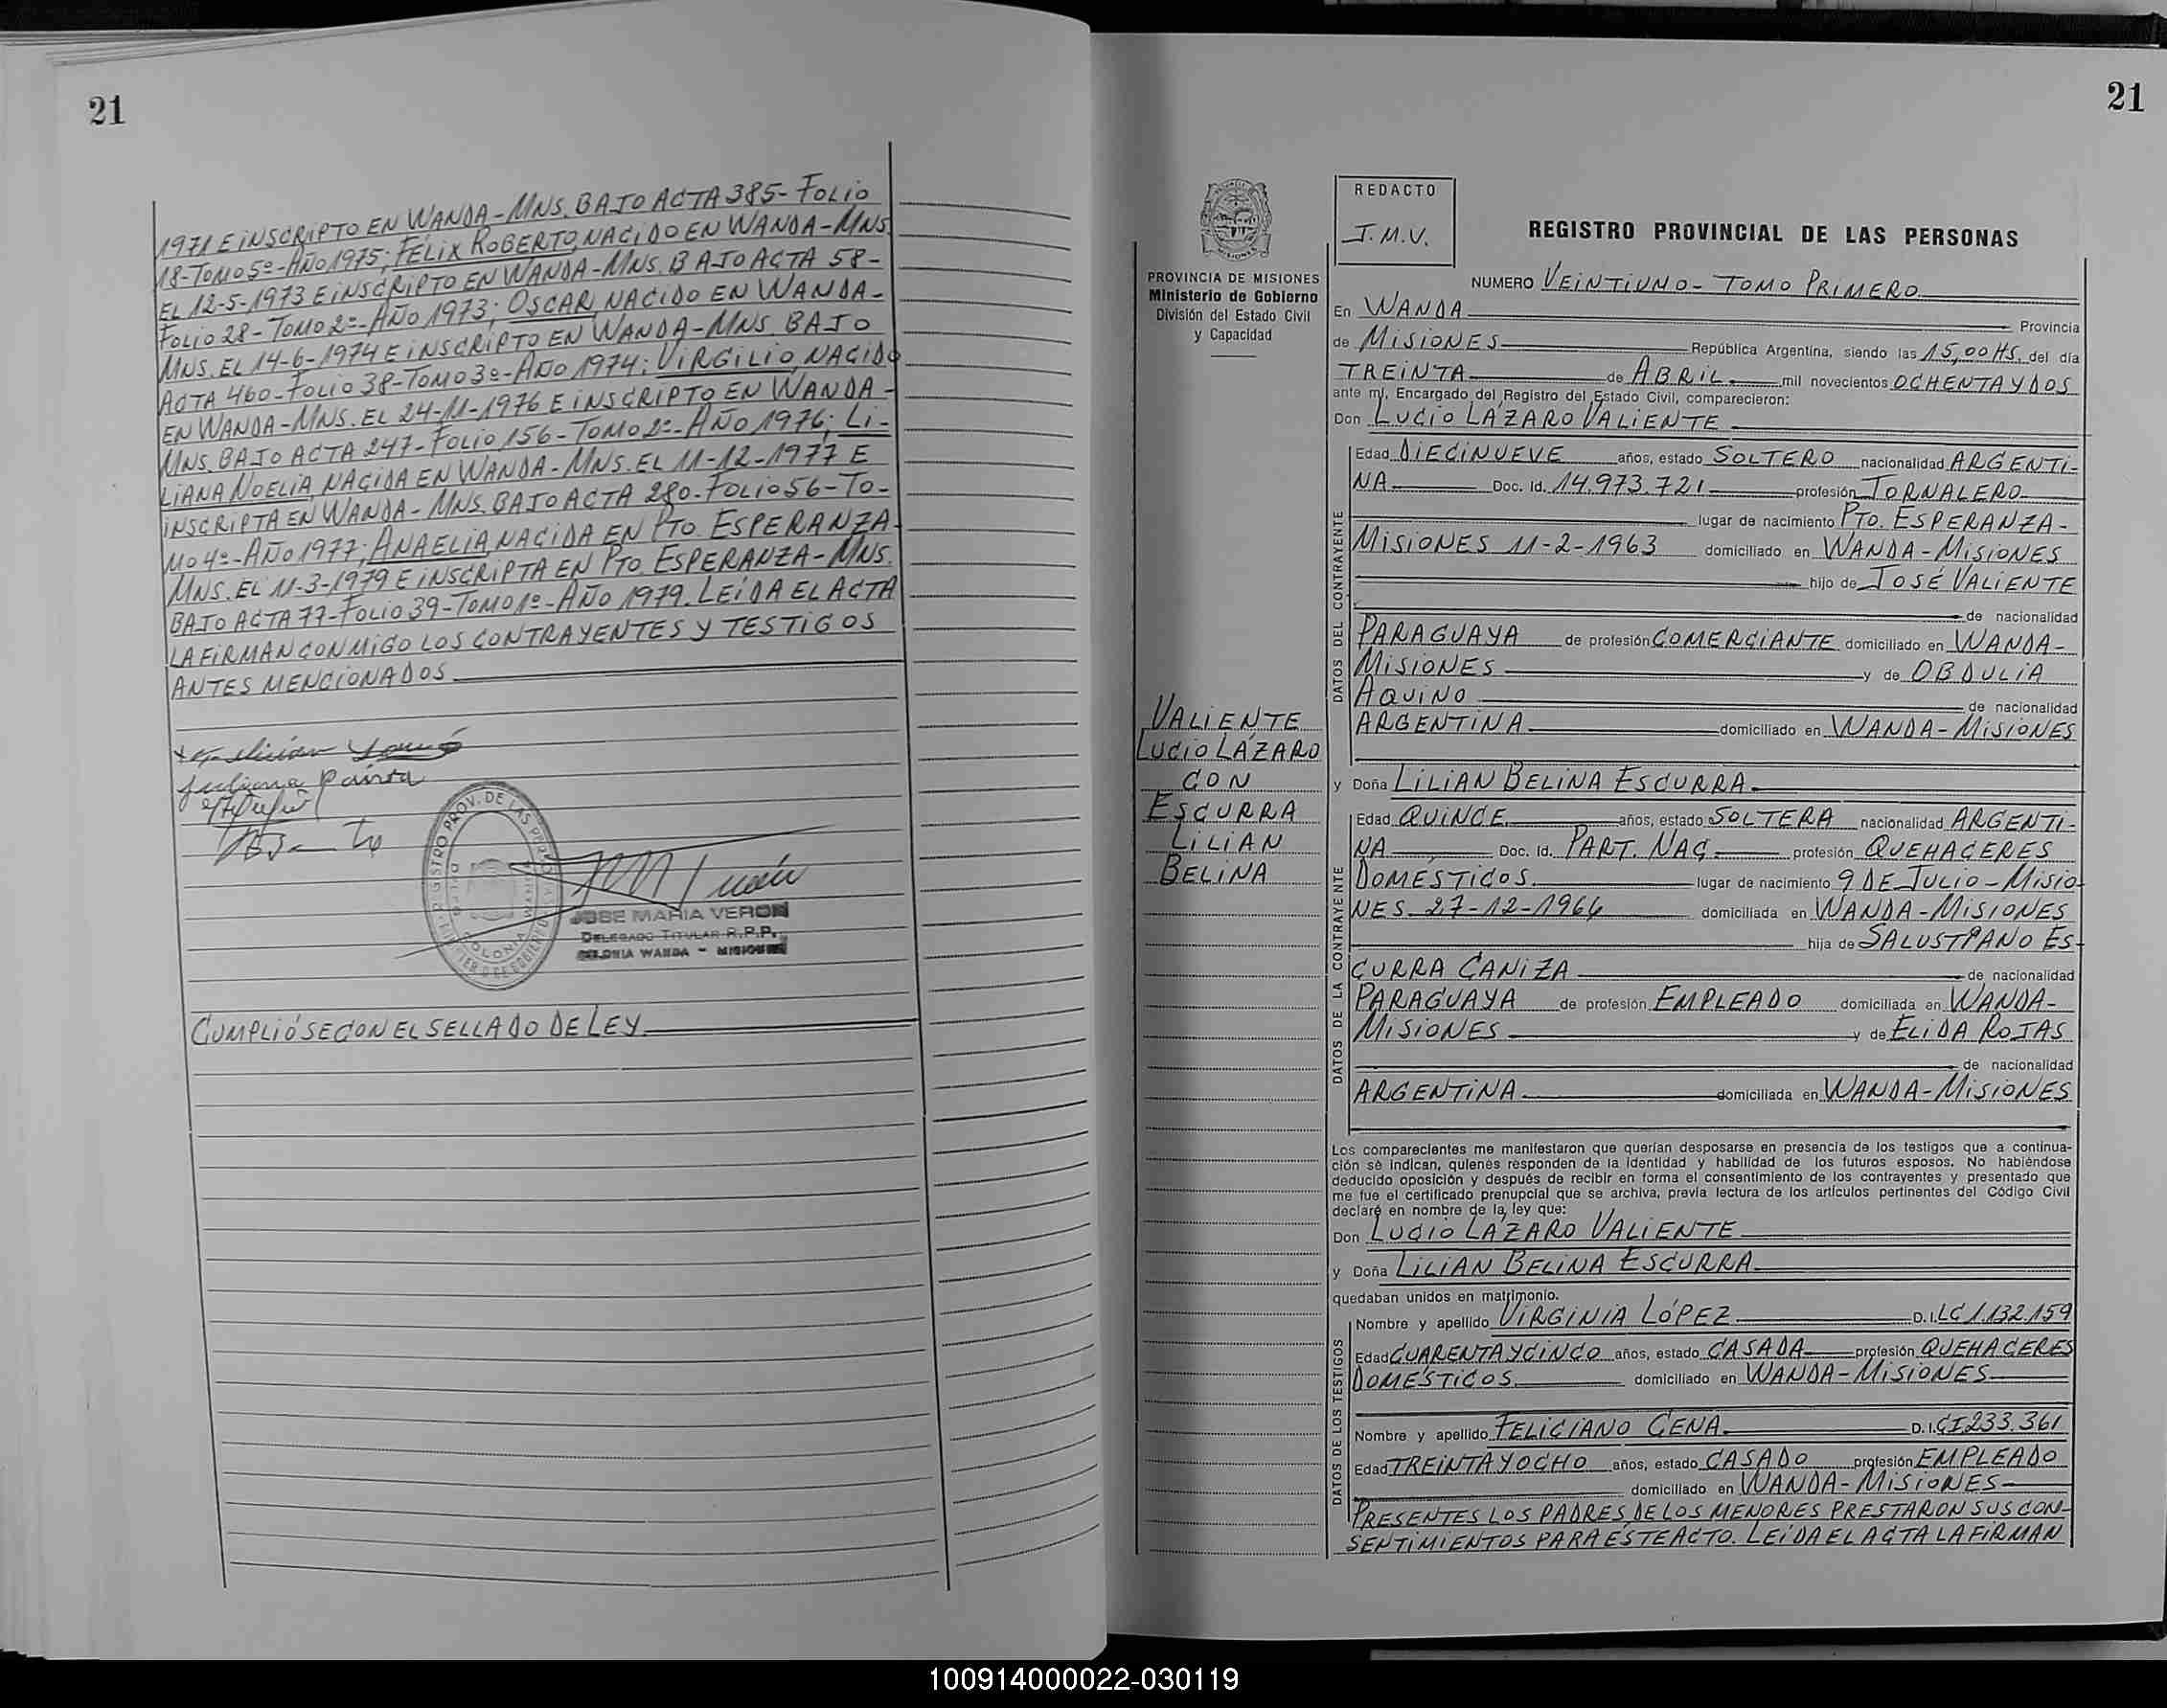 21
1971 E iNSCRiPTO EN WANDA-MNS. BAJO ACTA 385-FOLiO
18-TOMO 5º-AÑO 1975; FÉLIX ROBERTO, NACiDO EN WANDA-MNS.
EL 12-5-1973 E iNSCRiPTO EN WANDA-MNS. BAJO ACTA 58-
FOLiO 28-TOMO 2º-AÑO 1973; OSCAR, NACiDO EN WANDA-
MNS. EL 14-6-1974 E iNSCRiPTO EN WANDA-MNS. BAJO
ACTA 460-FOLiO 38-TOMO 3º-AÑO 1974; ViRGiLiO, NACiDO
EN WANDA-MNS. EL 24-11-1976 E iNSCRiPTO EN WANDA-
MNS. BAJO ACTA 247-FOLiO 156-TOMO 2º-AÑO 1976; Li-
LiANA NOELiA, NACiDA EN WANDA-MNS. EL 11-12-1977 E
iNSCRiPTA EN WANDA-MNS. BAJO ACTA 280-FOLiO 56-TO-
MO 4º-AÑO 1977; ANAELiA, NACiDA EN PTO. ESPERANZA-
MNS. EL 11-3-1979 E iNSCRiPTA EN PTO. ESPERANZA-MNS.
BAJO ACTA 77-FOLiO 39-TOMO 1º-AÑO 1979. LEíDA EL ACTA
LA FiRMAN CONMiGO LOS CONTRAYENTES Y TESTiGOS
ANTES MENCiONADOS
JOSE MARIA VERON
DELEGADO TITULAR R.P.P.
COLONIA WANDA - MISIONES
CUMPLiÓSE CON EL SELLADO DE LEY
21
REDACTO
J.M.V.
REGISTRO PROVINCIAL DE LAS PERSONAS
PROVINCIA DE MISIONES
Ministerio de Gobierno
División del Estado Civil
y Capacidad
VALiENTE
LUCiO LÁZARO
CON
ESCURRA
LiLiAN
BELiNA
NUMERO VEiNTiUNO - TOMO PRiMERO
En WANDA Provincia
de MiSiONES República Argentina, siendo las 15,00 HS. del día
TREiNTA de ABRiL mil novecientos OCHENTA Y DOS
ante mí, Encargado del Registro del Estado Civil, comparecieron:
Don LUCiO LÁZARO VALiENTE
DATOS DEL CONTRAYENTE
Edad DiECiNUEVE años, estado SOLTERO nacionalidad ARGENTi-
NA Doc. Id. 14.973.721 profesión JORNALERO
lugar de nacimiento PTO. ESPERANZA-
MiSiONES 11-2-1963 domiciliado en WANDA-MiSiONES
hijo de JOSÉ VALiENTE
de nacionalidad
PARAGUAYA de profesión COMERCiANTE domiciliado en WANDA-
MiSiONES y de OBDULiA
AQUiNO de nacionalidad
ARGENTiNA domiciliado en WANDA-MiSiONES
y Doña LiLiAN BELiNA ESCURRA
DATOS DE LA CONTRAYENTE
Edad QUiNCE años, estado SOLTERA nacionalidad ARGENTi-
NA Doc. Id. PART. NAC. profesión QUEHACERES
DOMÉSTiCOS lugar de nacimiento 9 DE JULiO-MiSiO-
NES 27-12-1966 domiciliada en WANDA-MiSiONES
hija de SALUSTiANO ES-
CURRA CAÑiZA de nacionalidad
PARAGUAYA de profesión EMPLEADO domiciliada en WANDA-
MiSiONES y de ELiDA ROJAS
de nacionalidad
ARGENTiNA domiciliada en WANDA-MiSiONES
Los comparecientes me manifestaron que querían desposarse en presencia de los testigos que a continua-
ción se indican, quienes responden de la identidad y habilidad de los futuros esposos. No habiéndose
deducido oposición y después de recibir en forma el consentimiento de los contrayentes y presentado que
me fue el certificado prenupcial que se archiva, previa lectura de los artículos pertinentes del Código Civil
declaré en nombre de la ley que:
Don LUCiO LÁZARO VALiENTE
y Doña LiLiAN BELiNA ESCURRA
quedaban unidos en matrimonio.
DATOS DE LOS TESTIGOS
Nombre y apellido ViRGiNiA LÓPEZ D.I. LC 1.132.159
Edad CUARENTA Y CiNCO años, estado CASADA profesión QUEHACERES
DOMÉSTiCOS domiciliado en WANDA-MiSiONES
Nombre y apellido FELiCiANO CENA D.I. CI 233.361
Edad TREiNTA Y OCHO años, estado CASADO profesión EMPLEADO
domiciliado en WANDA-MiSiONES
PRESENTES LOS PADRES DE LOS MENORES PRESTARON SUS CON-
SENTiMiENTOS PARA ESTE ACTO. LEíDA EL ACTA LA FiRMAN
100914000022-030119